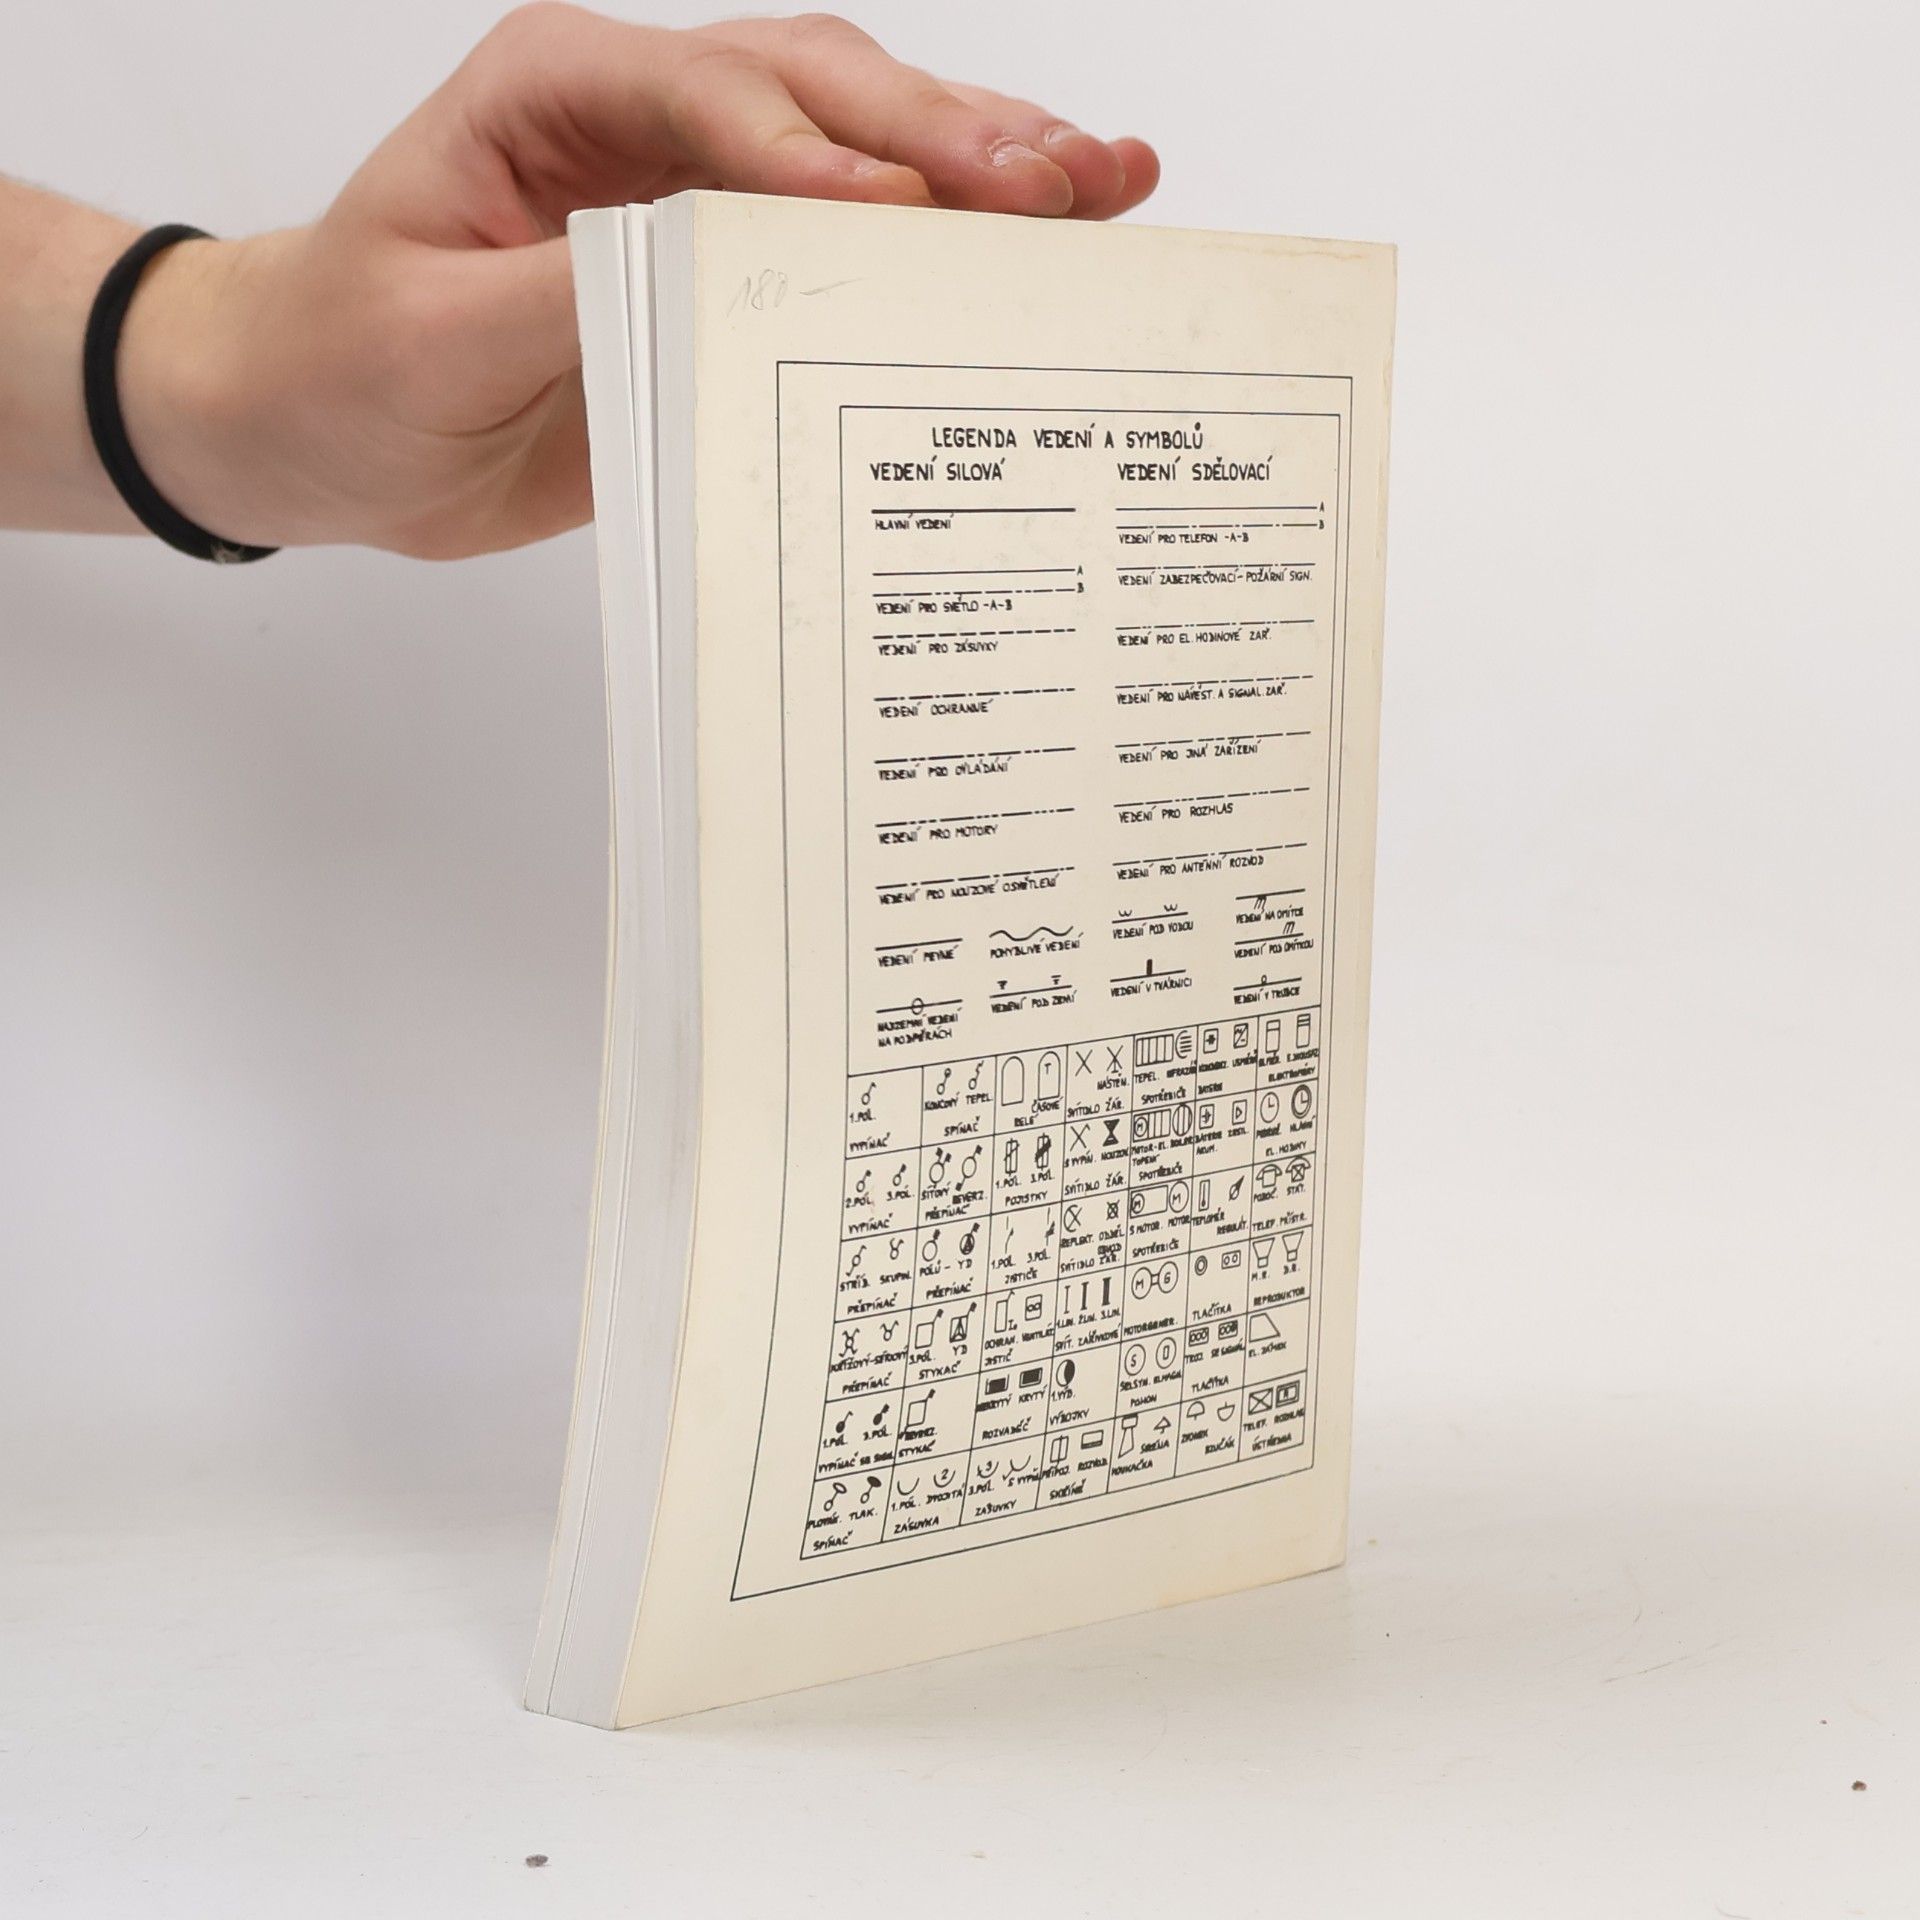 180 –
LEGENDA VEDENÍ A SYMBOLŮ
VEDENÍ SILOVÁ
HLAVNÍ VEDENÍ
A
B
VEDENÍ PRO SVĚTLO -A-B
VEDENÍ PRO ZÁSUVKY
VEDENÍ OCHRANNÉ
VEDENÍ PRO OVLÁDÁNÍ
VEDENÍ PRO MOTORY
VEDENÍ PRO NOUZOVÉ OSVĚTLENÍ
VEDENÍ SDĚLOVACÍ
A
B
VEDENÍ PRO TELEFON -A-B
VEDENÍ ZABEZPEČOVACÍ-POŽÁRNÍ SIGN.
VEDENÍ PRO EL. HODINOVÉ ZAŘ.
VEDENÍ PRO NÁVĚST. A SIGNAL. ZAŘ.
VEDENÍ PRO JINÁ ZAŘÍZENÍ
VEDENÍ PRO ROZHLAS
VEDENÍ PRO ANTÉNNÍ ROZVOD
VEDENÍ PEVNÉ
POHYBLIVÉ VEDENÍ
VEDENÍ POD VODOU
VEDENÍ NA OMÍTCE
VEDENÍ POD OMÍTKOU
NADZEMNÍ VEDENÍ
NA PODPĚRÁCH
VEDENÍ POD ZEMÍ
VEDENÍ V TVÁRNICI
VEDENÍ V TRUBCE
1.PÓL.
VYPÍNAČ
KONCOVÝ TEPEL.
SPÍNAČ
T
ČASOVÉ
RELÉ
NÁSTĚN.
SVÍTIDLO ŽÁR.
TEPEL. INFRAZÁŘ.
SPOTŘEBIČE
USMĚRŇ.
BATERIE
ELEKTROMĚRY
2.PÓL. 3.PÓL.
VYPÍNAČ
SÍŤOVÝ REVERZ.
PŘEPÍNAČ
1.PÓL. 3.PÓL.
POJISTKY
S VYPÍN. NOUZOV.
SVÍTIDLO ŽÁR.
M
MOTOR.-EL. BOILER
TOPENÍ
SPOTŘEBIČE
BATERIE ZESIL.
AKUM.
PODRUŽ. HLAVNÍ
EL. HODINY
STŘÍD. SKUPIN.
PŘEPÍNAČ
PÓLŮ - YD
PŘEPÍNAČ
1.PÓL. 3.PÓL.
JISTIČE
REFLEKT. ODDĚL.
OBVOD
SVÍTIDLO ŽÁR.
M M
S MOTOR. MOTOR
SPOTŘEBIČE
TEPLOMĚR
REGULÁT.
POBOČ. STÁT.
TELEF. PŘÍSTR.
KŘÍŽOVÝ-SÉRIOVÝ
PŘEPÍNAČ
3.PÓL. YD
STYKAČ
OCHRAN. VENTILÁT.
JISTIČ
1.LIN. 2.LIN. 3.LIN.
SVÍT. ZÁŘIVKOVÉ
M G
MOTORGENER.
TLAČÍTKA
M.R. D.R.
REPRODUKTOR
1.PÓL. 3.PÓL.
VYPÍNAČ SE SIGN.
REVERZ.
STYKAČ
NEKRYTÝ KRYTÝ
ROZVADĚČ
1.VÝB.
VÝBOJKY
S
SELSYN. ELMAGN.
POHON
TROJ. SE SIGNÁL.
TLAČÍTKA
EL. ZÁMEK
PLOVÁK. TLAK.
SPÍNAČ
2
1.PÓL. DVOJITÁ
ZÁSUVKA
3
3.PÓL. S VYPÍN.
ZÁSUVKY
PŘÍPOJ. ROZVOD.
SKŘÍNĚ
SIRÉNA
HOUKAČKA
ZVONEK
BZUČÁK
TELEF. ROZHLAS.
ÚSTŘEDNA